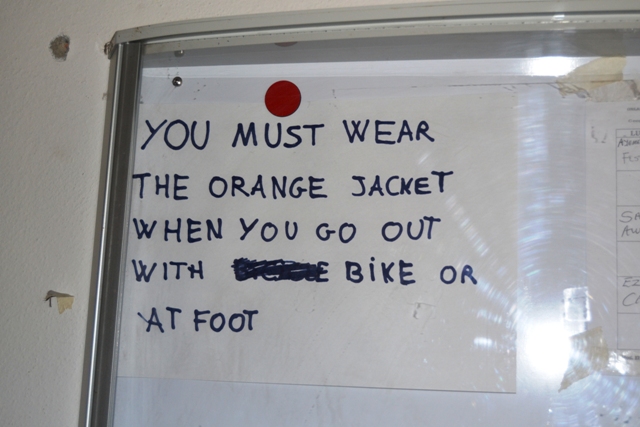 YOU MUST WEAR
THE ORANGE JACKET
WHEN YOU GO OUT
WITH BIKE OR
AT FOOT